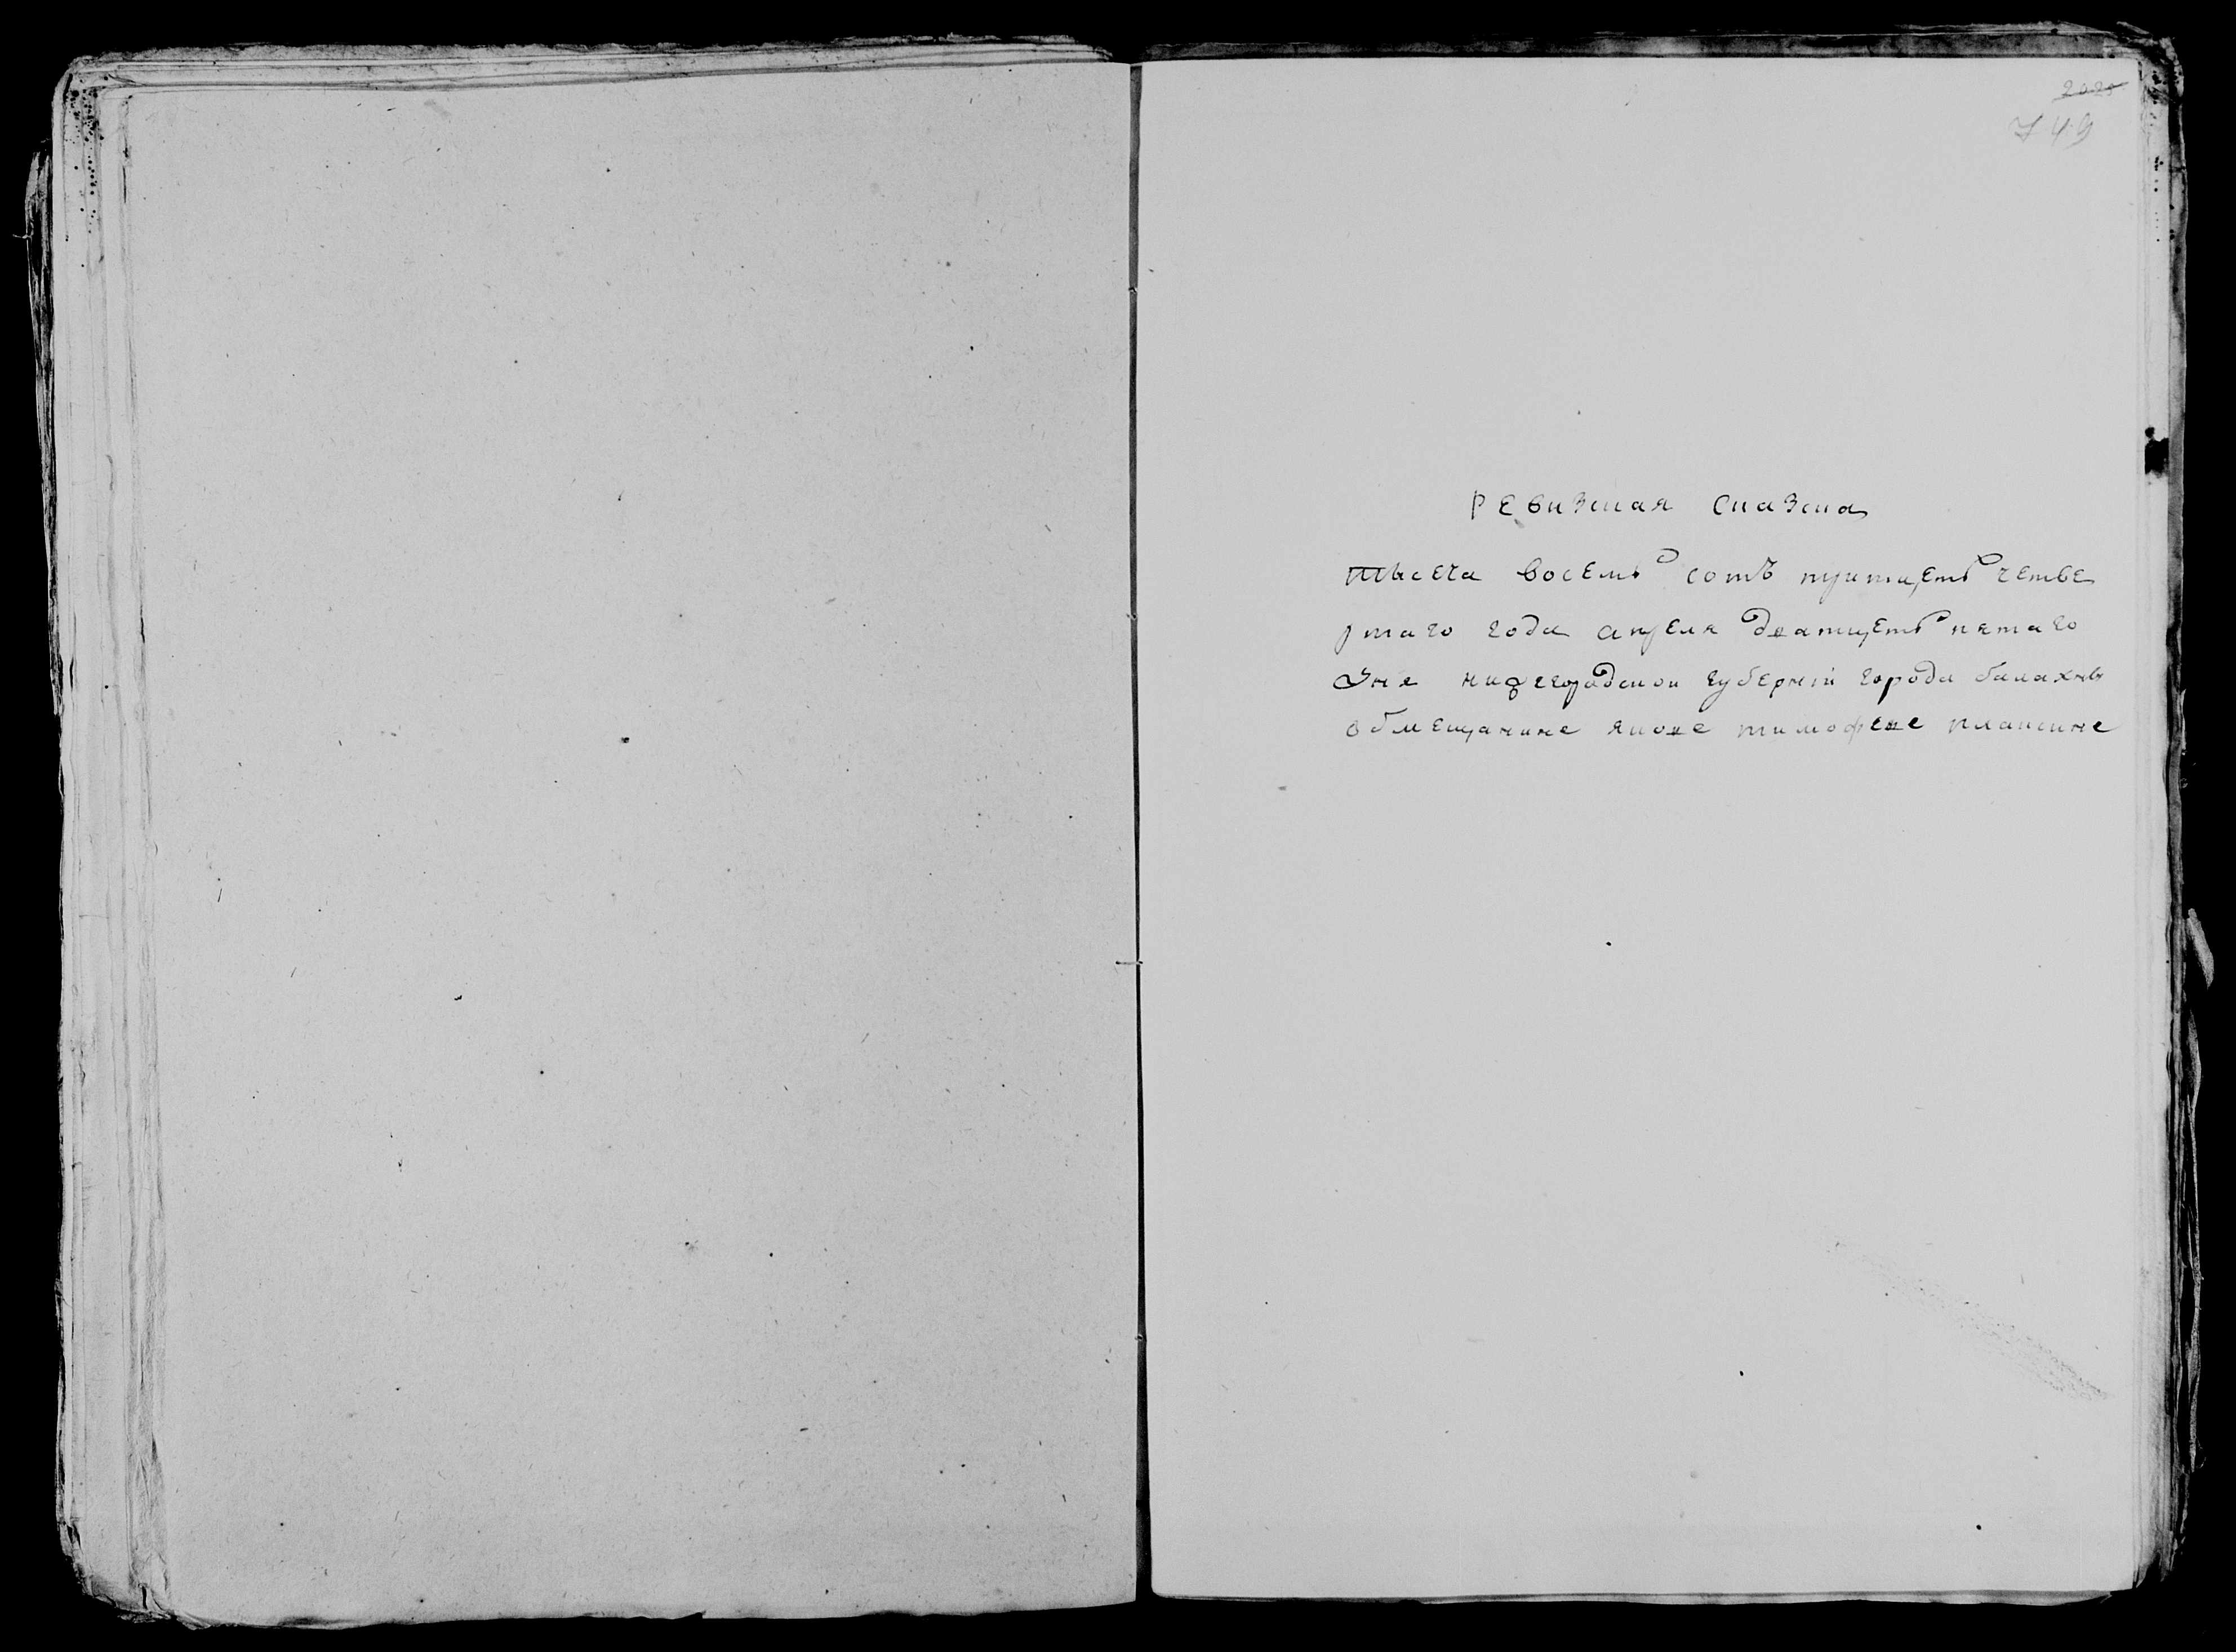 2025
749
Ревизская сказка
тысеча восемь сотъ тритцеть четве
ртаго года апреля дватцеть пятаго
дня нижегородской губерніи города балахны
обмещанине якове тимофеве плаксине